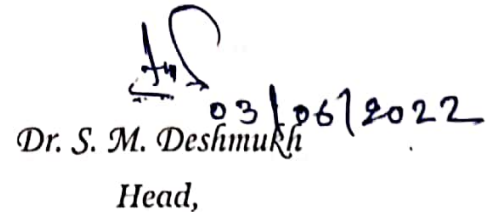 03/06/2022
Dr. S. M. Deshmukh
Head,